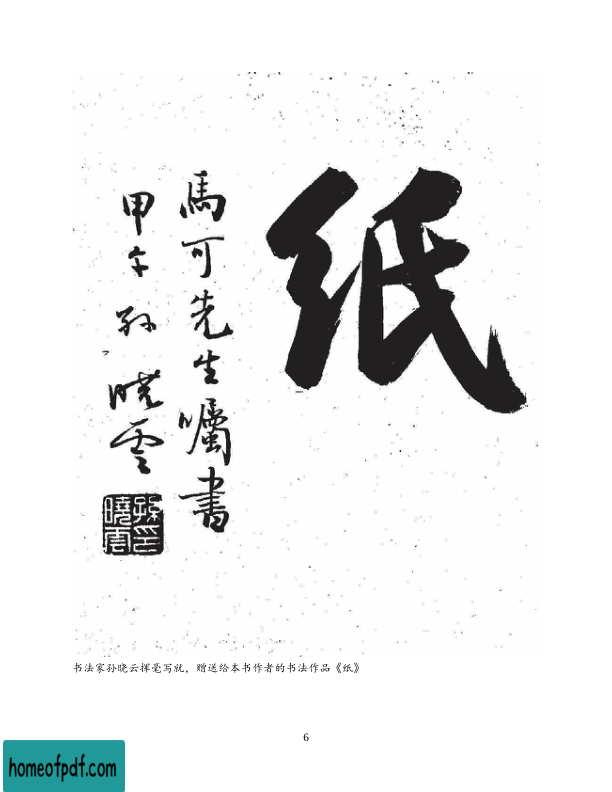 纸
馬可先生囑書
甲午孙晓雲
孫印曉雲
书法家孙晓云挥毫写就，赠送给本书作者的书法作品《纸》
6
homeofpdf.com